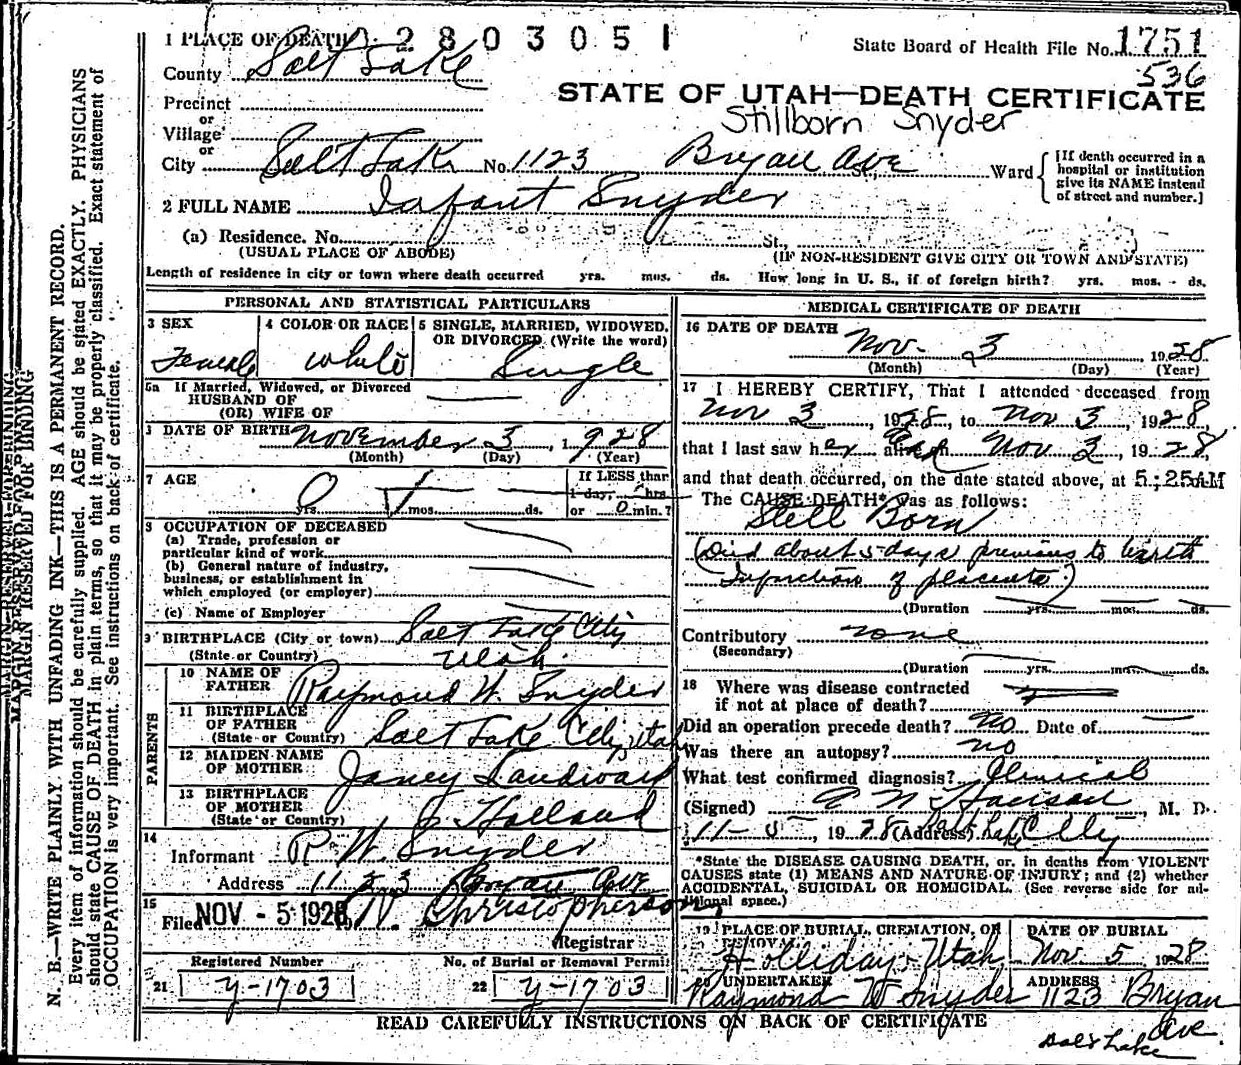 1 PLACE OF DEATH 2803051
State Board of Health File No. 1751
536
County Salt Lake
STATE OF UTAH—DEATH CERTIFICATE
Precinct
or
Stillborn Snyder
Village
or
City Salt Lake No. 1123 Bryan Ave St., Ward
[If death occurred in a
hospital or institution
give its NAME instead
of street and number.]
2 FULL NAME Infant Snyder
(a) Residence. No. St.,
(USUAL PLACE OF ABODE) (IF NON-RESIDENT GIVE CITY OR TOWN AND STATE)
Length of residence in city or town where death occurred yrs. mos. ds. How long in U. S., if of foreign birth? yrs. mos. ds.
PERSONAL AND STATISTICAL PARTICULARS
3 SEX
Female
4 COLOR OR RACE
White
5 SINGLE, MARRIED, WIDOWED,
OR DIVORCED (Write the word)
Single
5a If Married, Widowed, or Divorced
HUSBAND OF
(OR) WIFE OF
DATE OF BIRTH November 3 1928
(Month) (Day) (Year)
7 AGE
0 yrs. mos. ds.
If LESS than
1 day, hrs.
or 0 min.?
8 OCCUPATION OF DECEASED
(a) Trade, profession or
particular kind of work
(b) General nature of industry,
business, or establishment in
which employed (or employer)
(c) Name of Employer
9 BIRTHPLACE (City or town) Salt Lake City
(State or Country) Utah.
PARENTS
10 NAME OF
FATHER Raymond W. Snyder
11 BIRTHPLACE
OF FATHER
(State or Country) Salt Lake City, Utah
12 MAIDEN NAME
OF MOTHER Janey Landward
13 BIRTHPLACE
OF MOTHER
(State or Country) Holland
14
Informant R. W. Snyder
Address 1123 Bryan Ave
15
Filed NOV - 5 1928, Christopherson
Registrar
Registered Number No. of Burial or Removal Permit
21 y-1703 22 y-1703
MEDICAL CERTIFICATE OF DEATH
16 DATE OF DEATH
Nov. 3, 1928
(Month) (Day) (Year)
17 I HEREBY CERTIFY, That I attended deceased from
Nov 3, 1928, to Nov 3, 1928,
that I last saw her alive on Nov. 3, 1928,
and that death occurred, on the date stated above, at 5:25 AM
The CAUSE DEATH* was as follows:
Still Born
(Died about 5 days previous to birth
of placenta)
(Duration yrs. mos. ds.
Contributory none
(Secondary)
(Duration yrs. mos. ds.
18 Where was disease contracted
if not at place of death?
Did an operation precede death? No Date of
Was there an autopsy? no
What test confirmed diagnosis? Clinical
(Signed) Hanson, M. D.
11-5, 1928 (Address) Salt Lake City
*State the DISEASE CAUSING DEATH, or, in deaths from VIOLENT
CAUSES state (1) MEANS AND NATURE OF INJURY; and (2) whether
ACCIDENTAL, SUICIDAL OR HOMICIDAL. (See reverse side for ad-
ditional space.)
19 PLACE OF BURIAL, CREMATION, OR
REMOVAL
Holliday, Utah
DATE OF BURIAL
Nov. 5 1928
20 UNDERTAKER
Raymond W Snyder
ADDRESS
1123 Bryan
Ave.
Salt Lake
READ CAREFULLY INSTRUCTIONS ON BACK OF CERTIFICATE
MARGIN RESERVED FOR BINDING
N. B.—WRITE PLAINLY. WITH UNFADING INK—THIS IS A PERMANENT RECORD.
Every item of information should be carefully supplied. AGE should be stated EXACTLY. PHYSICIANS
should state CAUSE OF DEATH in plain terms, so that it may be properly classified. Exact statement of
OCCUPATION is very important. See instructions on back of certificate.